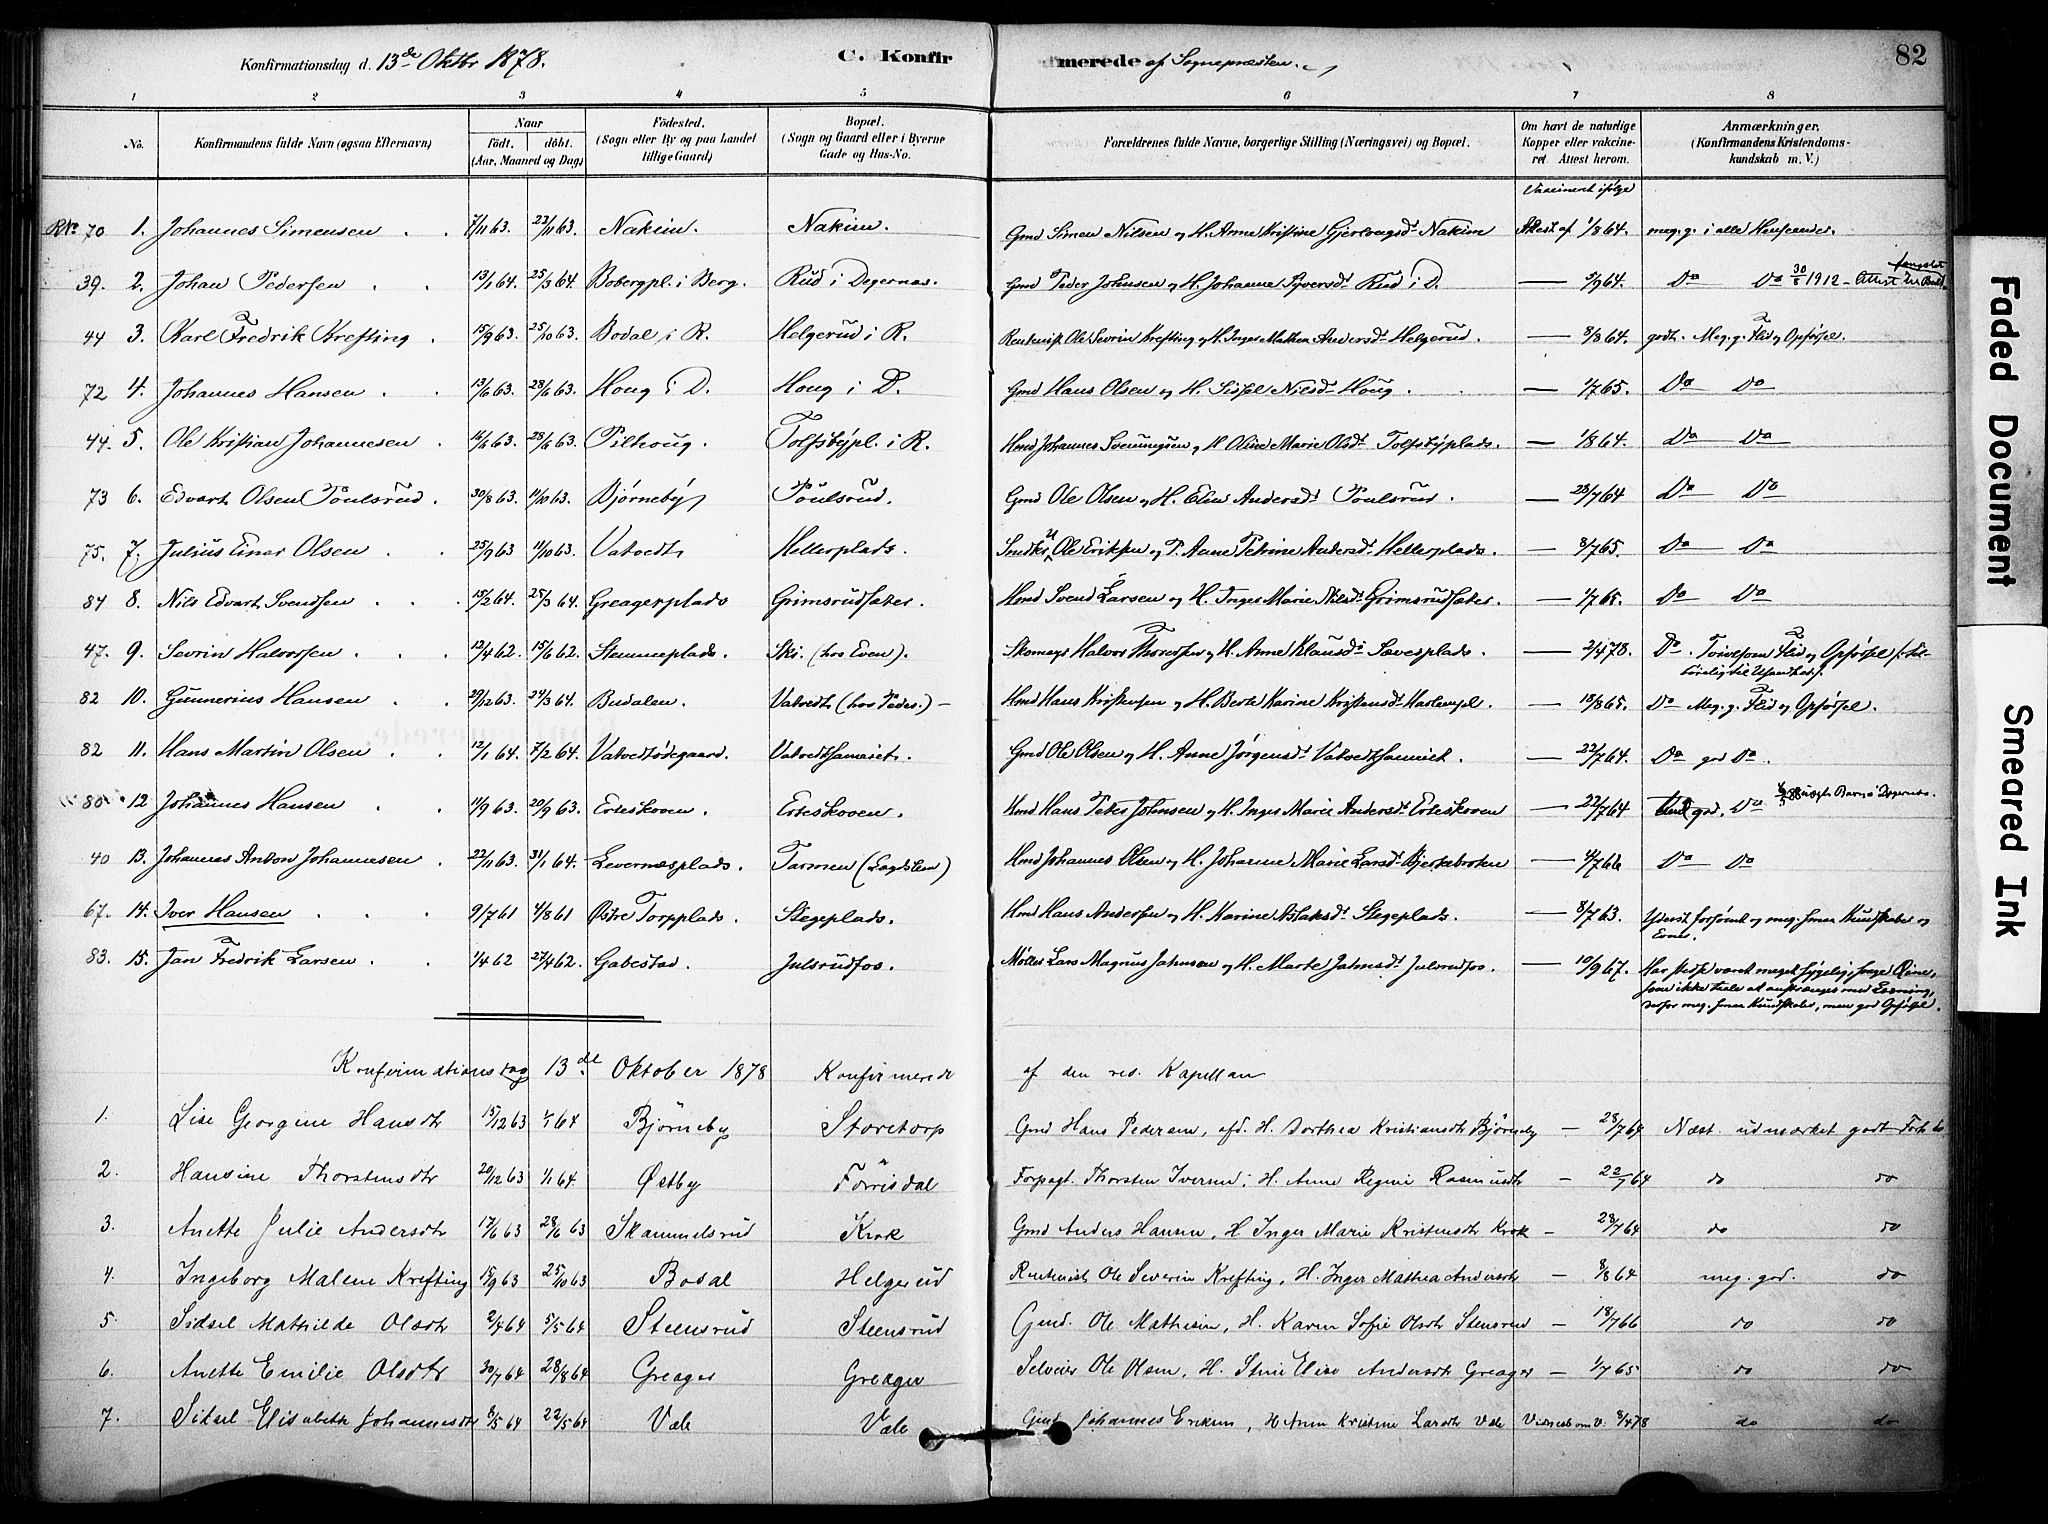 82
Konfirmationsdag d. 13de Oktbr 1878. C. Konfirmerede af Sognepræsten.
1 2 3 4 5 6 7 8
No. Konfirmandens fulde Navn (ogsaa Efternavn) Naar født. døbt. (Aar, Maaned og Dag) Fødested. (Sogn eller By og paa Landet tillige Gaard) Bopæl. (Sogn og Gaard eller i Byerne Gade og Hus-No. Forældrenes fulde Navne, borgerlige Stilling (Næringsvei) og Bopæl. Om havt de naturlige Kopper eller vakcineret. Attest herom. Anmærkninger. (Konfirmandens Kristendomskundskab m. V.)
Vaccineret ifølge
70 1. Johannes Simensen 7/11 63. 22/11 63. Nakim. Nakim. Gmd Simen Nilsen og H. Anne Kristine Nakim Attest af 1/8 64. meg. g. i alle Henseender.
39. 2. Johan Pedersen 13/1 64. 25/3 64. Bobergpl. i Berg. Rud i Degernes. Gmd Peder Johnsen og H. Johanne Syversdt Rud i D. — 5/9 64. Do Do 30/8 1912 - Attest
44 3. Karl Fredrik Krefting 15/9 63. 25/10 63. Bodal i R. Helgerud i R. Rentenist Ole Sevrin Krefting og H. Inger Mathea Andersdt Helgerud. — 8/8 64. godt. Meg. g. Flid og Opførsel.
72 4. Johannes Hansen 13/6 63. 28/6 63. Houg i D. Houg i D. Gmd Hans Olsen og H. Sidsel Nilsdt Houg. — 1/7 65. Do Do
44. 5. Ole Kristian Johannesen 16/6 63. 28/6 63. Pilhoug. Tolfsbypl. i R. Hmd Johannes Svenungsen og H. Oline Marie Olsdt Tolfsbyplads. — 1/8 64. Do Do
73 6. Edvart Olsen Poulsrud. 30/8 63. 11/10 63. Bjørneby Poulsrud. Gmd Ole Olsen og H. Elin Andersdt Poulsrud. — 28/7 64 Do Do
75. 7. Julius Einar Olsen 25/9 63 11/10 63. Vatvedt Hellerplads. Ole Eriksen og P. Anne Petrine Andersdt Hellerplads. — 8/7 65. Do Do
84 8. Nils Edvart Svendsen 15/2 64. 25/3 64. Greagerplads Grimsrudsæter. Hmd Svend Larsen og H. Inger Marie Nilsdt Grimsrudsæter. — 1/7 65. Do Do
47. 9. Sevrin Halvorsen 12/4 62. 15/6 62. Stemmeplads. Ski. (hos Even). Skomagr Halvor Thoresen og H. Anne Klausdt Sævesplads. — 2/4 78. Do. Tvivlsom Flid og Opførsel
82 10. Gunnerius Hansen 29/12 63. 24/3 64. Budalen. Vatvedt (hos Peder.) — Hmd Hans Kristensen og H. Berte Karine Kristensdt — 18/8 65. Do Meg. g. Flid og Opførsel.
82 11. Hans Martin Olsen 12/1 64. 7/2 64. Vatvedtødegaard. Vatvedthameret. Gmd Ole Olsen og H. Anne Jørgensdt Vatvedthameret. — 22/7 64. Do god Do.
80 12 Johannes Hansen 1/9 63. 20/9 63. Erteskoven. Erteskoven. Hmd Hans Peter Johnsen og H. Inger Marie Andersdt Erteskoven — 22/7 64 god. Do
40 13. Johannes Anton Johannesen 22/11 63. 31/1 64. Levernæsplads. Tarmen (Lagdslem) Hmd Johannes Olsen og H. Johanne Marie Larsdt Bjerkebroten — 4/7 66 Do Do
67. 14. Iver Hansen 9/7 61 4/8 61 Østre Torpplads. Stegeplads. Hmd Hans Andersen og H. Karine Aslaksdt Stegeplads. — 8/7 63. Yderst forsømt og meg. smaa Kundskaber og Evner.
83. 15. Jan Fredrik Larsen 1/4 62 27/4 62. Gabestad. Julsrudfos. Møller Lars Magnus Jahnsen og H. Marte Jahnsdt Julsrudfos. — 10/9 67. Har stedse været meget sygelig, svage Øine,
som ikke taale at anstrænges med Læsning,
derfor meg. smaa Kundskaber, men god Opførsel.
Konfirmationsdag 13de Oktober 1878 Konfirmerede af den res. Kapellan
1. Lise Georgine Hansdtr 15/12 63 1/1 64 Bjørneby Storetorp Gmd Hans Pedersen, afd. H. Dorthea Kristiansdtr Bjørneby — 28/7 64 Næst. udmærket godt
2. Hansine Thorstensdtr 20/12 63 1/1 64. Østby Førrisdal Forpagt. Thorsten Iversen, H. Anne Regine Rasmusdtr — 22/7 64 do do
3. Anette Julie Andersdtr 17/6 63 28/6 63 Skammelsrud Krok Gmd Anders Hansen, H Inger Marie Kristensdtr Krok — 28/7 64 do do
4. Ingeborg Malene Krefting 15/9 63 25/10 63 Bodal Helgerud Rentenist Ole Severin Krefting, H. Inger Mathea Andersdtr — 8/8 64 meg. god. do
5. Sidsel Mathilde Olsdtr 2/4 64 5/5 64 Steensrud Steensrud Gmd. Ole Mathisen, H. Karen Sofie Olsdtr Stensrud — 18/7 66 do do
6. Anette Emilie Olsdtr 30/7 64 28/8 64 Greager Greager Selveier Ole Olsen, H. Stine Elise Andersdtr Greager — 1/7 65 do do
7. Sidsel Elisabeth Johannesdtr 8/5 64 22/5 64 Væle Væle Gmd Johannes Eriksen, H Anne Kristine Larsdtr Væle Vidnesb om V. 8/4 78 do do
Faded Document
Smeared Ink